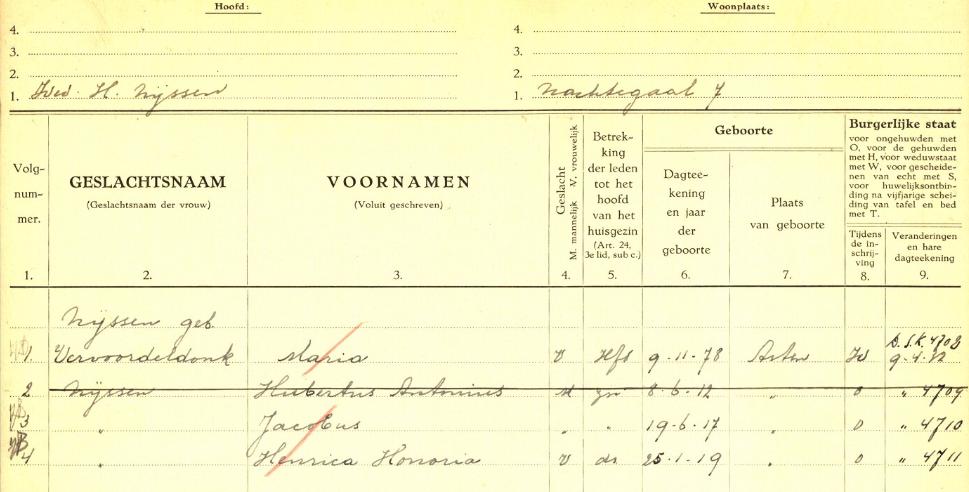 Hoofd: Woonplaats:
4. 4.
3. 3.
2. 2.
1. Wed. H. Nijssen 1. Nachtegaal 7
Volg-
num-
mer.
GESLACHTSNAAM
(Geslachtsnaam der vrouw)
VOORNAMEN
(Voluit geschreven)
Geslacht
M. mannelijk V. vrouwelijk
Betrek-
king
der leden
tot het
hoofd
van het
huisgezin
(Art. 24,
3e lid, sub c.)
Geboorte
Dagtee-
kening
en jaar
der
geboorte
Plaats
van geboorte
Burgerlijke staat
voor ongehuwden met
O, voor de gehuwden
met H, voor weduwstaat
met W, voor gescheide-
nen van echt met S,
voor huwelijksontbin-
ding na vijfjarige schei-
ding van tafel en bed
met T.
Tijdens
de in-
schrij-
ving
Veranderingen
en hare
dagteekening
1. 2. 3. 4. 5. 6. 7. 8. 9.
Nijssen geb.
1 Vervoordeldonk Maria v Hfd 9-11-78 Asten W D.S.K. 4708
2 Nijssen Hubertus Antonius M zn 8-6-12 " O " 4709
3 " Jacobus " " 19-6-17 " O " 4710
4 " Henrica Honoria v dr 25-1-19 " O " 4711